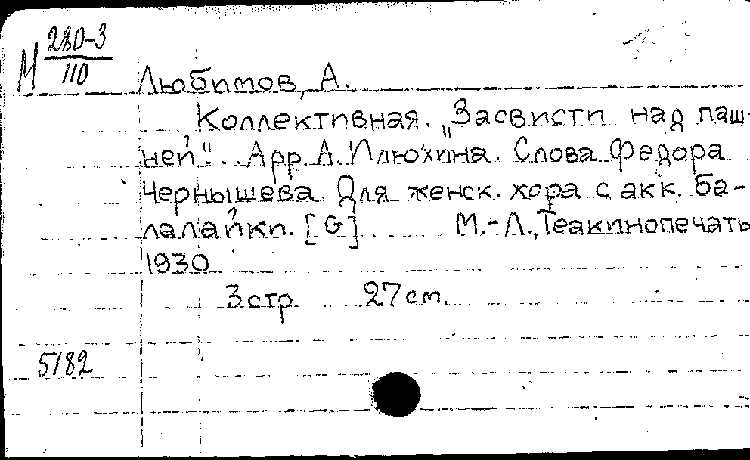 М 280-3
110
Любимов, А.
Коллективная. "Засвисти над паш-
ней". Арр. А. Илюхина. Слова Федора
Чернышева. Для женск. хора с акк. ба-
лалайки. [G] М.-Л., Теакинопечать
1930
3 стр 27 см.
5182